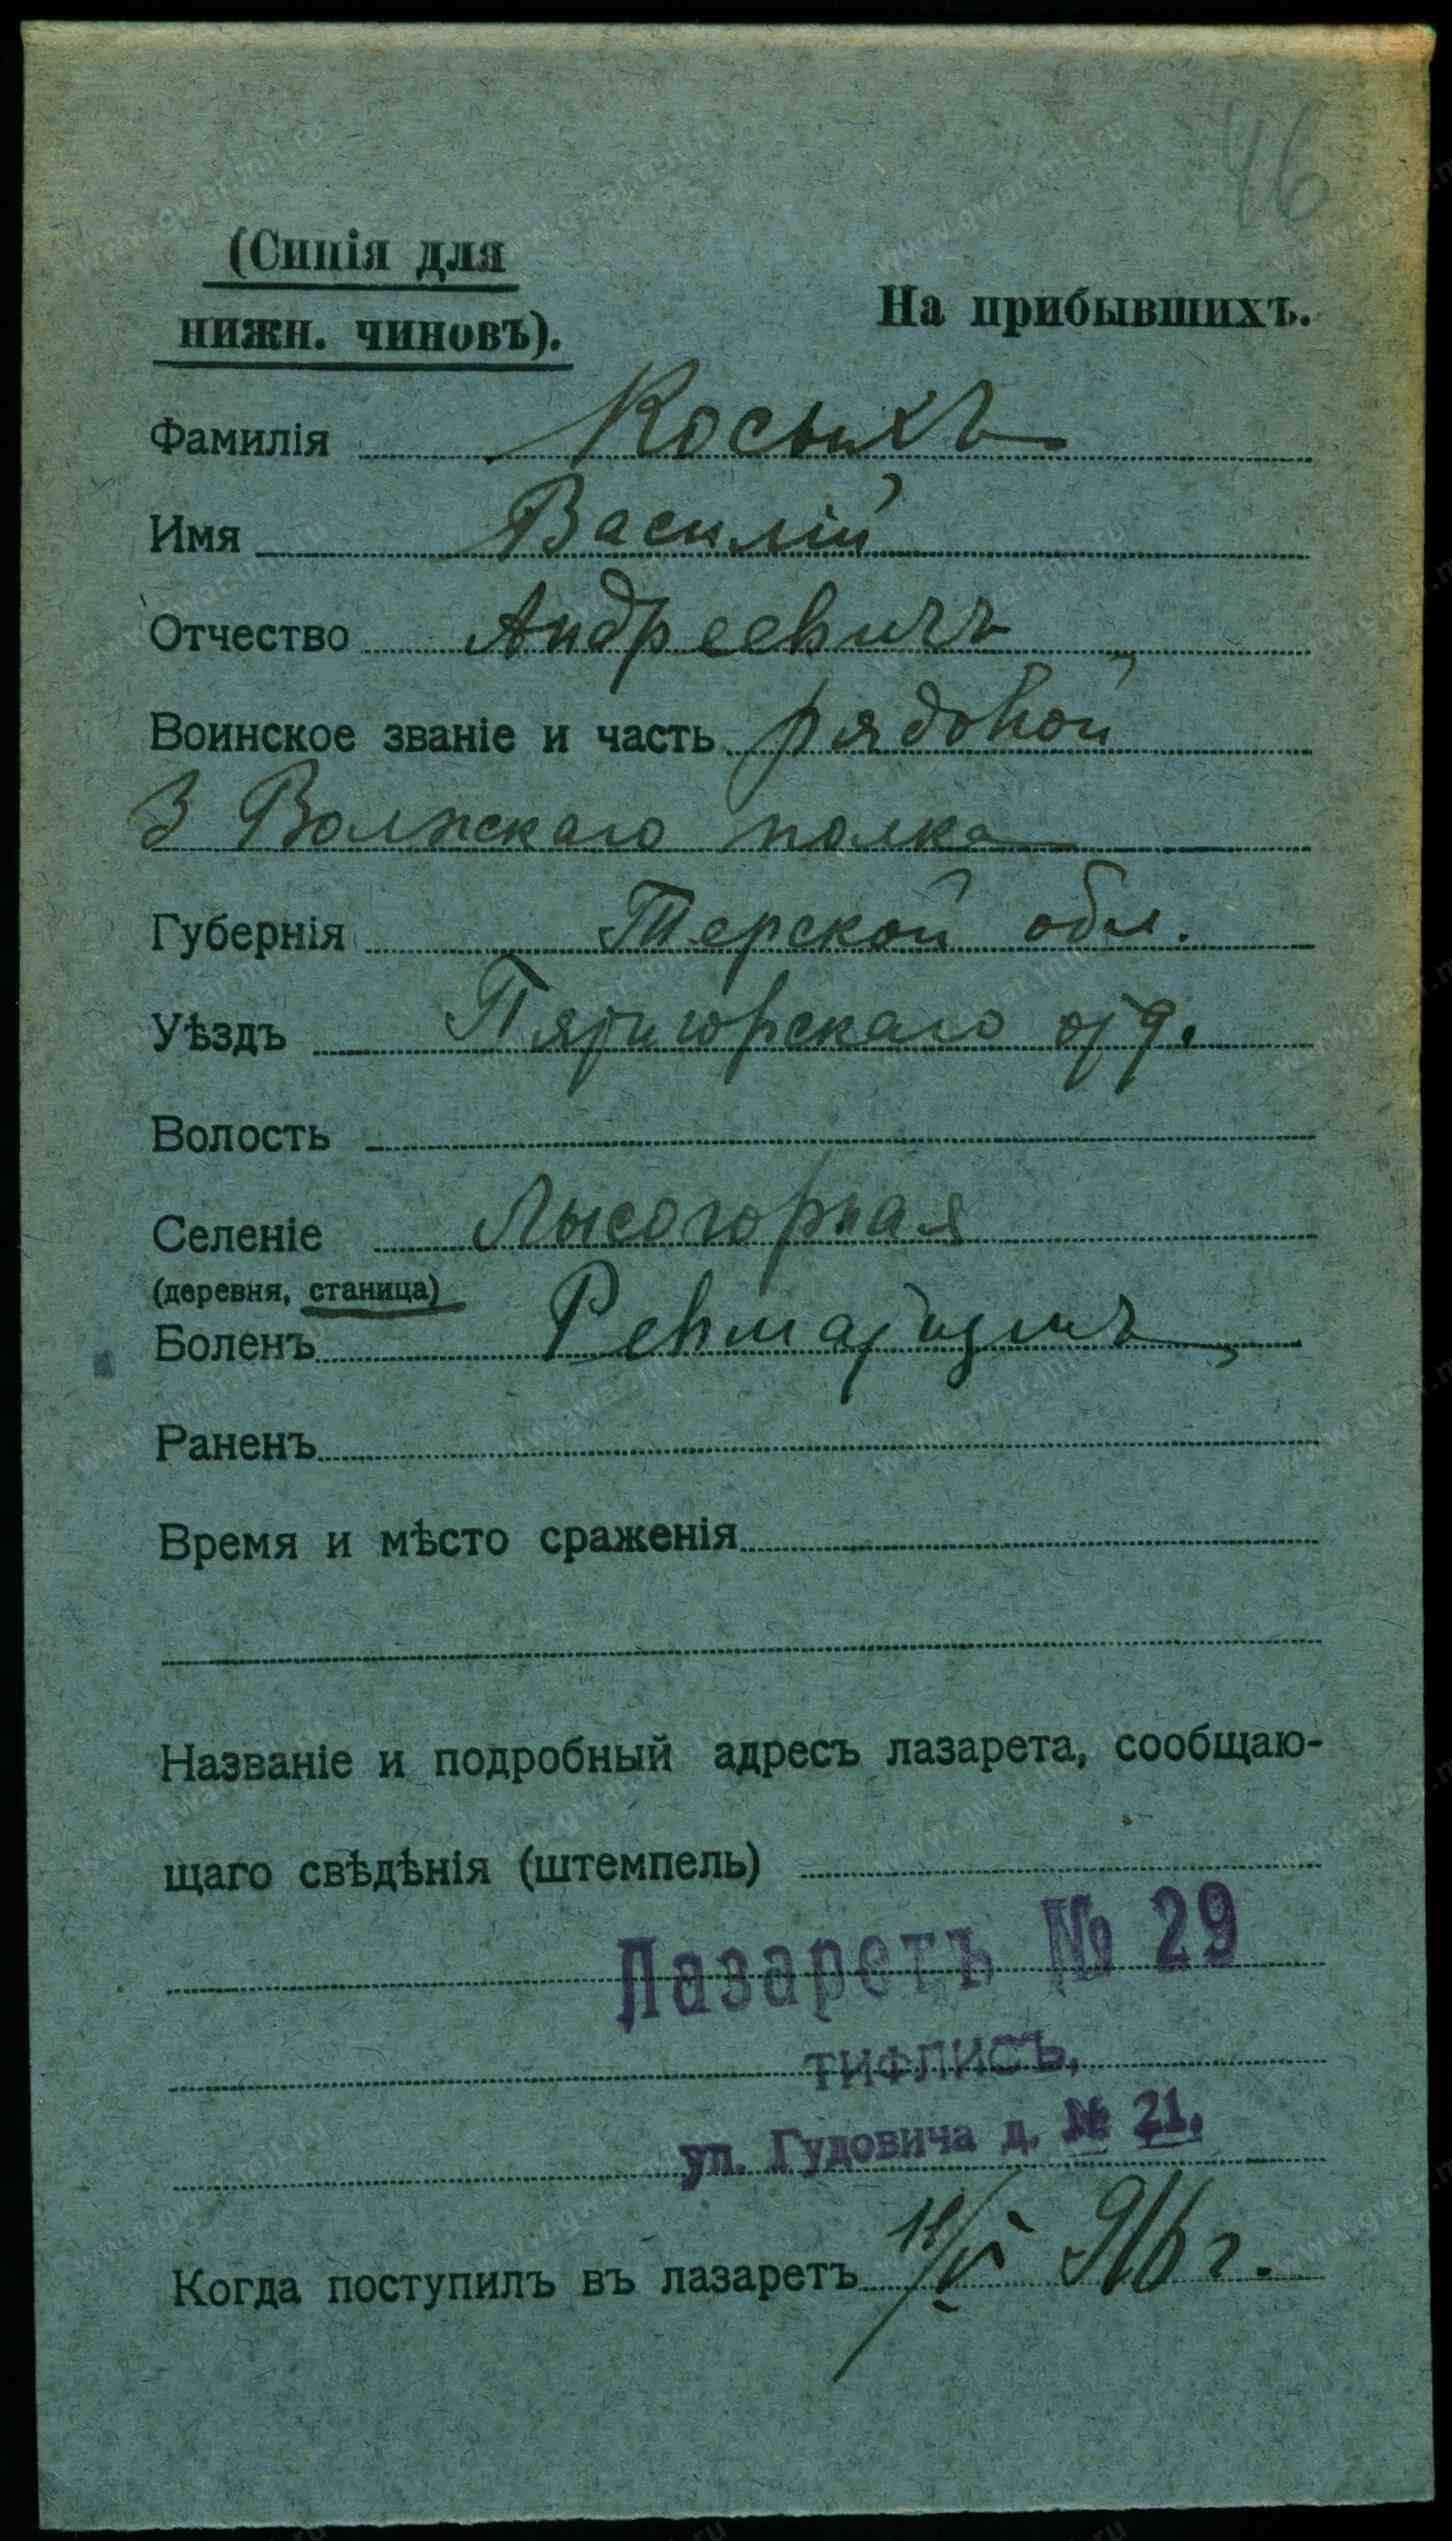 46
(Синія для
нижн. чиновъ).
На прибывшихъ.
Фамилія Косыхъ
Имя Василій
Отчество Андреевичъ
Воинское званіе и часть рядовой
3 Волжскаго полка
Губернія Терской обл.
Уѣздъ Пятигорскаго отд.
Волость
Селеніе Лысогорная
(деревня, станица)
Боленъ Ревматизмъ
Раненъ
Время и мѣсто сраженія
Названіе и подробный адресъ лазарета, сообщаю-
щаго свѣдѣнія (штемпель)
Лазаретъ № 29
ТИФЛИСЪ,
ул. Гудовича д. № 21.
Когда поступилъ въ лазаретъ 12/V 916 г.
www.gwar.mil.ru